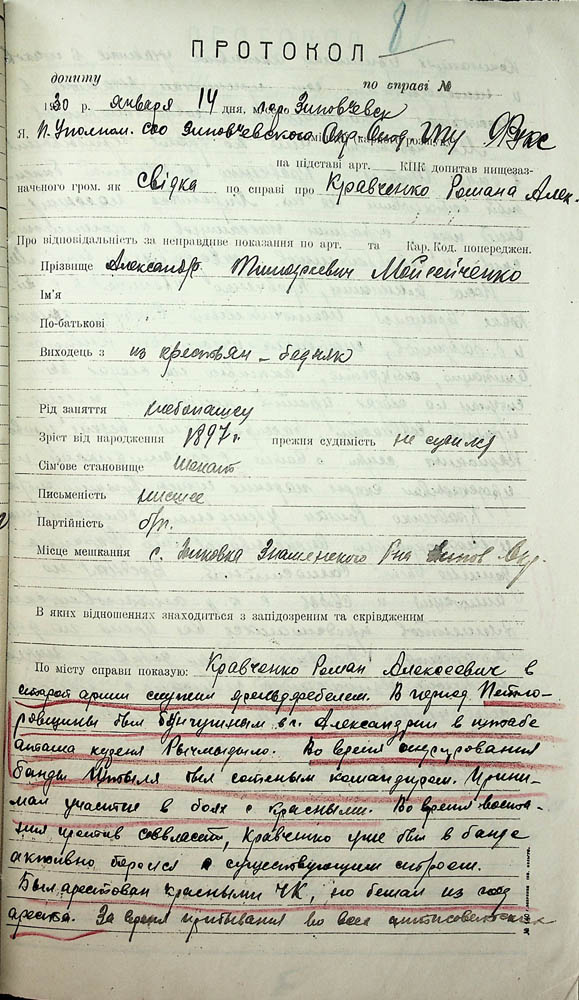 ПРОТОКОЛ
допиту по справі №
1930 р. января 14 дня, місто Зиновьевск
Я, П. Уполном. Зиновьевского Окр. Отд. ГПУ
на підставі арт. КПК допитав нищезаз-
наченого гром. як свідка по справі про Кравченко Романа Алек.
Про відповідальність за неправдиве показання по арт. та Кар. Код. попереджен.
Прізвище Александр Тимофеевич Мойсейченко
Ім'я
По-батькові
Виходець з из крестьян – бедняк
Рід заняття хлебопашец
Зріст від народження 1897 г. прежня судимість не судился
Сім'ове становище женат
Письменість низшее
Партійність б/п.
Місце мешкання с. Знаменского Р-на Зинов. Окр.
В яких відношеннях знаходиться з запідозреним та скрівдженим
По місту справи показую: Кравченко Роман Алексеевич в
старой армии служил фельдфебелем. В период Петлю-
ровщины был бунчужным в г. Александрии в штабе
атамана куреня. Во время оперирования
банды был сотенным командиром. Прини-
мал участие в боях с красными. Во время восста-
ния против совласти, Кравченко уже был в банде
активно боролся с существующим строем.
Был арестован красными ЧК, но бежал из под
ареста. За время пребывания во всех антисоветских